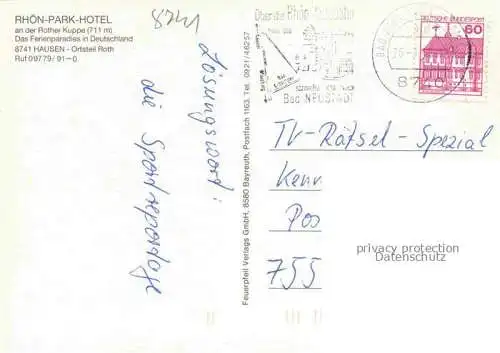 RHÖN-PARK-HOTEL
an der Rother Kuppe (711 m)
Das Ferienparadies in Deutschland
8741 HAUSEN - Ortsteil Roth
Ruf 09779/91-0
8741
Lösungswort:
die Sportreportage
Feuerpfeil Verlags GmbH, 8580 Bayreuth, Postfach 1163, Tel. 0921/46257
Über die
Bad NEUSTADT
BAD
DEUTSCHE BUNDESPOST
60
TV-Rätsel-Spezial
Kenv
Pos
755
privacy protection
Datenschutz